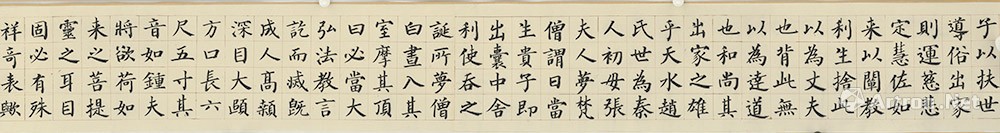 子以扶世
導俗出家
則運慈悲
定慧佐如
来以闡教
利生捨此
以為丈夫
也背此無
以為達道
也和尚其
出家之雄
乎天水趙
氏世為秦
人初母張
夫人夢梵
僧謂曰當
生貴子即
出囊中舍
利使吞之
誕所夢僧
白晝入其
室摩其頂
曰必當大
弘法教言
訖而滅既
成人高顙
深目大頤
方口長六
尺五寸其
音如鍾夫
將欲荷如
来之菩提
靈之耳目
固必有殊
祥奇表歟